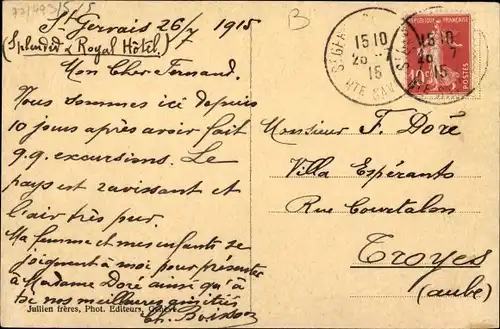 St Gervais 26/7 1915
(Splendid & Royal Hôtel.)
Mon Cher Fernand.
Nous sommes ici depuis
10 jours après avoir fait
q.q. excursions. Le
pays est ravissant et
l'air très pur.
Ma femme et mes enfants se
joignent à moi pour présenter
à Madame Doré ainsi qu'à
toi nos meilleures amitiés
Ch. Boisson
Jullien frères, Phot. Editeurs, Genève
B
15 10
26 - 7
15
HTE SAV
REPUBLIQUE FRANÇAISE
10c
POSTES
Monsieur F. Doré
Villa Espéranto
Rue Courtalon
Troyes
(aube)